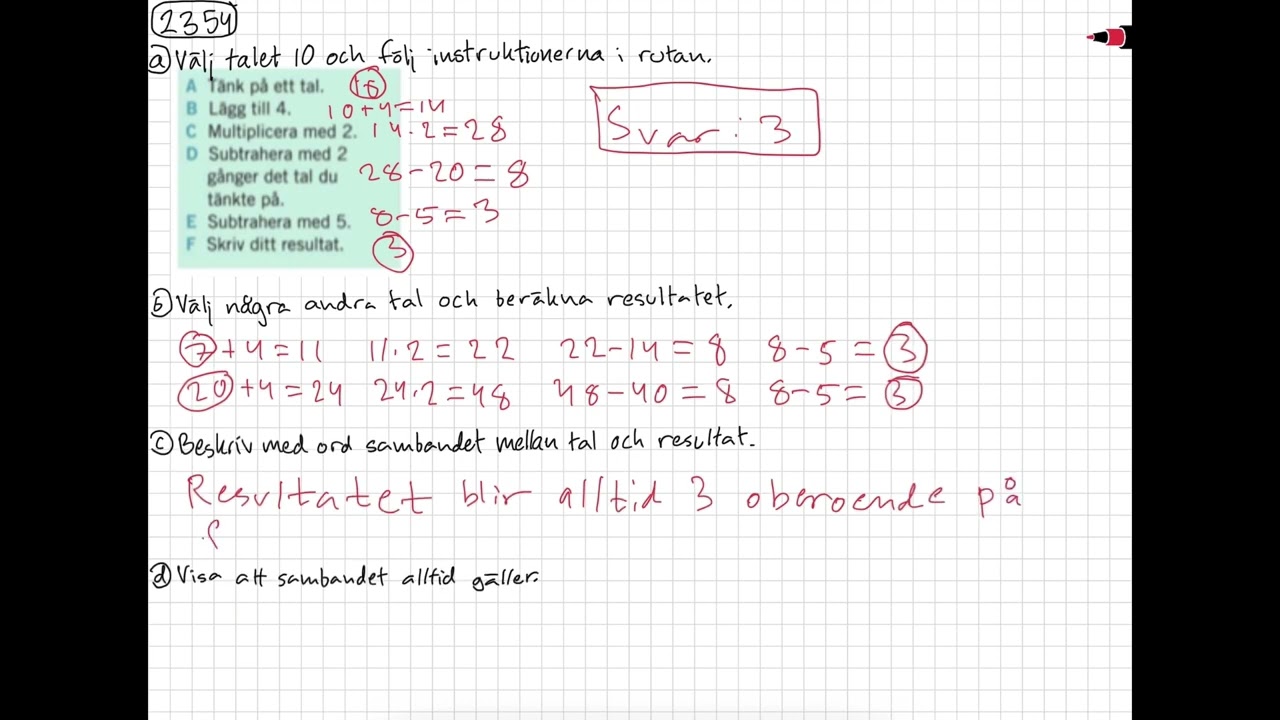 2354
a) Välj talet 10 och följ instruktionerna i rutan.
A Tänk på ett tal. 10
B Lägg till 4. 10+4=14
C Multiplicera med 2. 14·2=28
D Subtrahera med 2
gånger det tal du 28-20=8
tänkte på.
E Subtrahera med 5. 8-5=3
F Skriv ditt resultat. 3
Svar: 3
b) Välj några andra tal och beräkna resultatet.
7+4=11 11·2=22 22-14=8 8-5=3
20+4=24 24·2=48 48-40=8 8-5=3
c) Beskriv med ord sambandet mellan tal och resultat.
Resultatet blir alltid 3 oberoende på
d) Visa att sambandet alltid gäller.